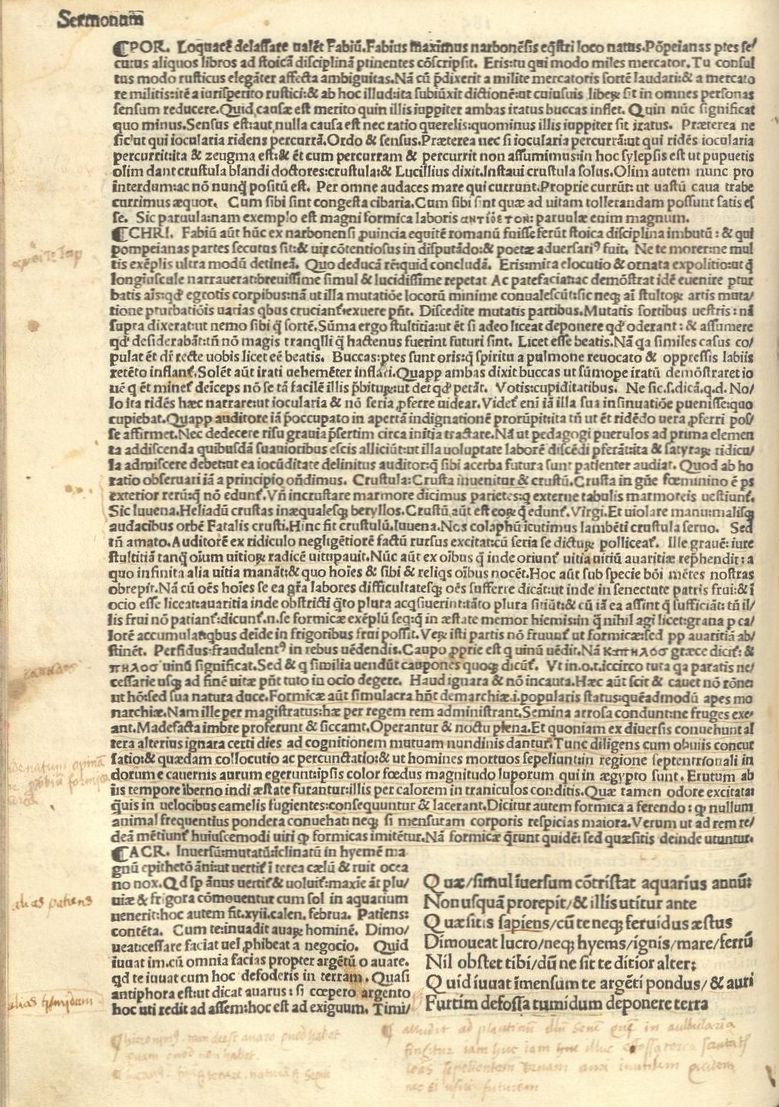 Sermonum
¶POR. Loquacē delassare ualēt Fabiū. Fabius maximus narbonēsis eq̄stri loco natus. Pōpeianas ptes se/
cutus aliquos libros ad stoicā disciplinā ptinentes cōscripsit. Eris: tu qui modo miles mercator. Tu consul
tus modo rusticus elegāter affecta ambiguitas. Nā cū p̄dixerit a milite mercatoris sortē laudari: & a mercato
re militis: itē a iurisperito rustici: & ab hoc illud: ita subiūxit dictionē: ut cuiusuis libeꝛ sit in omnes personas
sensum reducere. Quid causæ est merito quin illis iuppiter ambas iratus buccas inflet. Quin nūc significat
quo minus. Sensus est: aut nulla causa est nec ratio querelis: quominus illis iuppiter sit iratus. Præterea ne
sic: ut qui iocularia ridens percurrā. Ordo & sensus. Præterea nec si iocularia percurrā: ut qui ridēs iocularia
percurrit: ita & zeugma est: & ēt cum percurram & percurrit non assumimus: in hoc sylepsis est ut pupuetis
olim dant crustula blandi doctores: crustula: & Lucillius dixit. Instaui crustula solus. Olim autem nunc pro
interdum: ac nō nunq̄ positū est. Per omne audaces mare qui currunt. Proprie currūt: ut uastū caua trabe
currimus æquor. Cum sibi sint congesta cibaria. Cum sibi sint quæ ad uitam tollerandam possunt satis es
se. Sic paruula: nam exemplo est magni formica laboris αντίθετον: paruulæ enim magnum.
¶CHRI. Fabiū aūt hūc ex narbonensi ꝓuincia equitē romanū fuisse ferūt stoica disciplina imbutū: & qui
pompeianas partes secutus sit: & uiꝝ cōtentiosus in disputādo: & poetæ aduersariꝰ fuit. Ne te morer: ne mul
tis exēplis ultra modū detineā. Quo deducā rē: quid concludā. Eris: mira elocutio & ornata expolitio: ut q̄
longiuscule narrauerat: breuissime simul & lucidissime repetat Ac patefacia: ac demōstrat idē euenire ptur
batis aīs: qd egrotis corpibus: nā ut illa mutatiōe locorū minime conualescūt: sic neq; aī stultoꝝ artis muta/
tione pturbatiōis uarias q̄bus cruciant̄ exuere pn̄t. Discedite mutatis partibus. Mutatis sortibus uestris: nā
supra dixerat: ut nemo sibi q̄ sortē. Sūma ergo stultitia: ut ēt si adeo liceat deponere qd oderant: & assumere
qd desiderabāt: tn̄ nō magis tranqlli q̄ hactenus fuerint futuri sint. Licet esse beatis. Nā qa similes casus co/
pulat ēt dr̄ recte uobis licet eē beatis. Buccas: ptes sunt oris: q̄ spiritu a pulmone reuocato & oppressis labiis
retēto inflant̄. Solēt aūt irati uehemēter inflari. Quapp ambas dixit buccas ut sūmope iratū demōstraret io
uē q̄ ēt minet̄ deiceps nō se tā facilē illis p̄biturꝝ: ut det qd petāt. Votis: cupiditatibus. Ne sic. s. dicā. q. d. No/
lo ita ridēs hæc narrare: ut iocularia & nō seria ꝓferre uidear. Videt̄ eni iā illa sua insinuatiōe puenisse: quo
cupiebat. Quapp auditore iā p̄occupato in apertā indignationē prorūpit: ita tn̄ ut ēt ridēdo uera ꝓferri pos/
se affirmet. Nec dedecere risu grauia p̄sertim circa initia tractare. Nā ut pedagogi puerulos ad prima elemen
ta addiscenda quibusdā suauioribus escis alliciūt: ut illa uoluptate laborē discēdi pferāt: ita & satyraꝝ ridicu/
la admiscere debet: ut ea iocūditate delinitus auditor: q̄ sibi acerba futura sunt patienter audiat. Quod ab ho
ratio obseruari iā a principio on̄dimus. Crustula: Crusta inuenitur & crustū. Crusta in gn̄e fœminino ē ps
exterior reꝝ: q̄ nō edunt̄. Vn̄ incrustare marmore dicimus parietes: q externe tabulis marmoreis uestiunt̄.
Sic Iuuena. Heliadū crustas inæquales: q̄ beryllos. Crustū aūt est eorꝝ q̄ edunt̄. Virgi. Et uiolare manu: malisq;
audacibus orbē Fatalis crusti. Hinc fit crustulū. Iuuena. Nos colaphū icutimus lambēti crustula seruo. Sed
tn̄ amato. Auditorē ex ridiculo negligētiorē factū rursus excitat: cū seria se dicturꝝ polliceat̄. Ille grauē: iure
stultitiā tanq̄ oīum uitioꝝ radicē uituperauit. Nūc aūt ex oībus q̄ inde oriunt̄ uitia uitiū auaritiæ rep̄hendit: a
quo infinita alia uitia manāt: & quo hoīes & sibi & reliqs oībus nocēt. Hoc aūt sub specie bōi mētes nostras
obrepit. Nā cū oēs hoīes se ea gr̄a labores difficultatesq; oēs sufferre dicāt: ut inde in senectute patris frui: & ī
ocio esse liceat: auaritia inde obstricti q̄to plura acqsiuerint: tāto plura sitiūt: & cū iā ea assint q̄ sufficiāt: tn̄ il/
lis frui nō patiunt̄: dicunt̄. n. se formicæ exēplū seq: q̄ in æstate memor hiemis: in q̄ nihil agi licet: grana p ca/
lorē accumulat: qbus deide in frigoribus frui possit. Veꝝ isti partis nō fruunt̄ ut formicæ: sed pp auaritiā ab/
stinēt. Perfidus: fraudulentꝰ in rebus uēdendis. Caupo ꝓprie est q uinū uēdit. Nā κάπηλος græce dicit̄: &
πηλος uinū significat. Sed & q similia uendūt caupones quoq; dicūt̄. Vt in. o. t. i: circo tuta qa paratis ne/
cessarie usq; ad finē uitæ pn̄t tuto in ocio degere. Haud ignara & nō incauta. Hæc aūt scit & cauet nō rōne
ut hō: sed sua natura duce. Formicæ aūt simulacra hn̄t demarchiæ. i. popularis status: quēadmodū apes mo
narchiæ. Nam ille per magistratus: hæ per regem rem administrant. Semina arrosa condunt: ne fruges exe/
ant. Madefacta imbre proferunt & siccant. Operantur & noctu plena. Et quoniam ex diuersis conuehunt al
tera alterius ignara certi dies ad cognitionem mutuam nundinis dantur. Tunc diligens cum obuiis concur
satio: & quædam collocutio ac percunctatio: & ut homines mortuos sepeliunt: in regione septentrionali in
dorum e cauernis aurum egerunt: ipsis color fœdus magnitudo luporum qui in ægypto sunt. Erutum ab
iis tempore iberno indi æstate furantur: illis per calorem in traniculos conditis. Quæ tamen odore excitatæ
q̄uis in uelocibus camelis fugientes: consequuntur & lacerant. Dicitur autem formica a ferendo: q nullum
animal frequentius pondera conuehat: neq; si mensuram corporis respicias maiora. Verum ut ad rem re/
deā mētiunt̄ huiuscemodi uiri q formicas imitētur. Nā formicæ q̄runt quidē: sed quæsitis deinde utuntur.
¶ACR. Inuersū: mutatū: iclinatū in hyemē ma
gnū epithetō āni: ut uertit̄ ī terea cælū & ruit ocea
no nox. Qd sp ānus uertit̄ & uoluit̄: maxīe āt plu/
uiæ & frigora cōmouentur cum sol in aquarium
uenerit: hoc autem fit. xvii. calen. februa. Patiens:
contēta. Cum te: inuadit auaꝝ hominē. Dimo/
ueat: cessare faciat uel ꝓhibeat a negocio. Quid
iuuat im. cū omnia facias propter argētū o auare.
qd te iuuat cum hoc defoderis in terram. Quasi
antiphora est: ut dicat auarus: si cœpero argento
hoc uti redit ad assem: hoc est ad exiguum. Timi/
Quæ/simul iuersum cōtristat aquarius annū:
Non usquā prorepit/& illis utitur ante
Quæsitis sapiens/cū te neq; feruidus æstus
Dimoueat lucro/neq; hyems/ignis/mare/ferrū
Nil obstet tibi/dū ne sit te ditior alter:
Quid iuuat īmensum te argēti pondus/& auri
Furtim defossa tumidum deponere terra
alias patiens
alias timidum